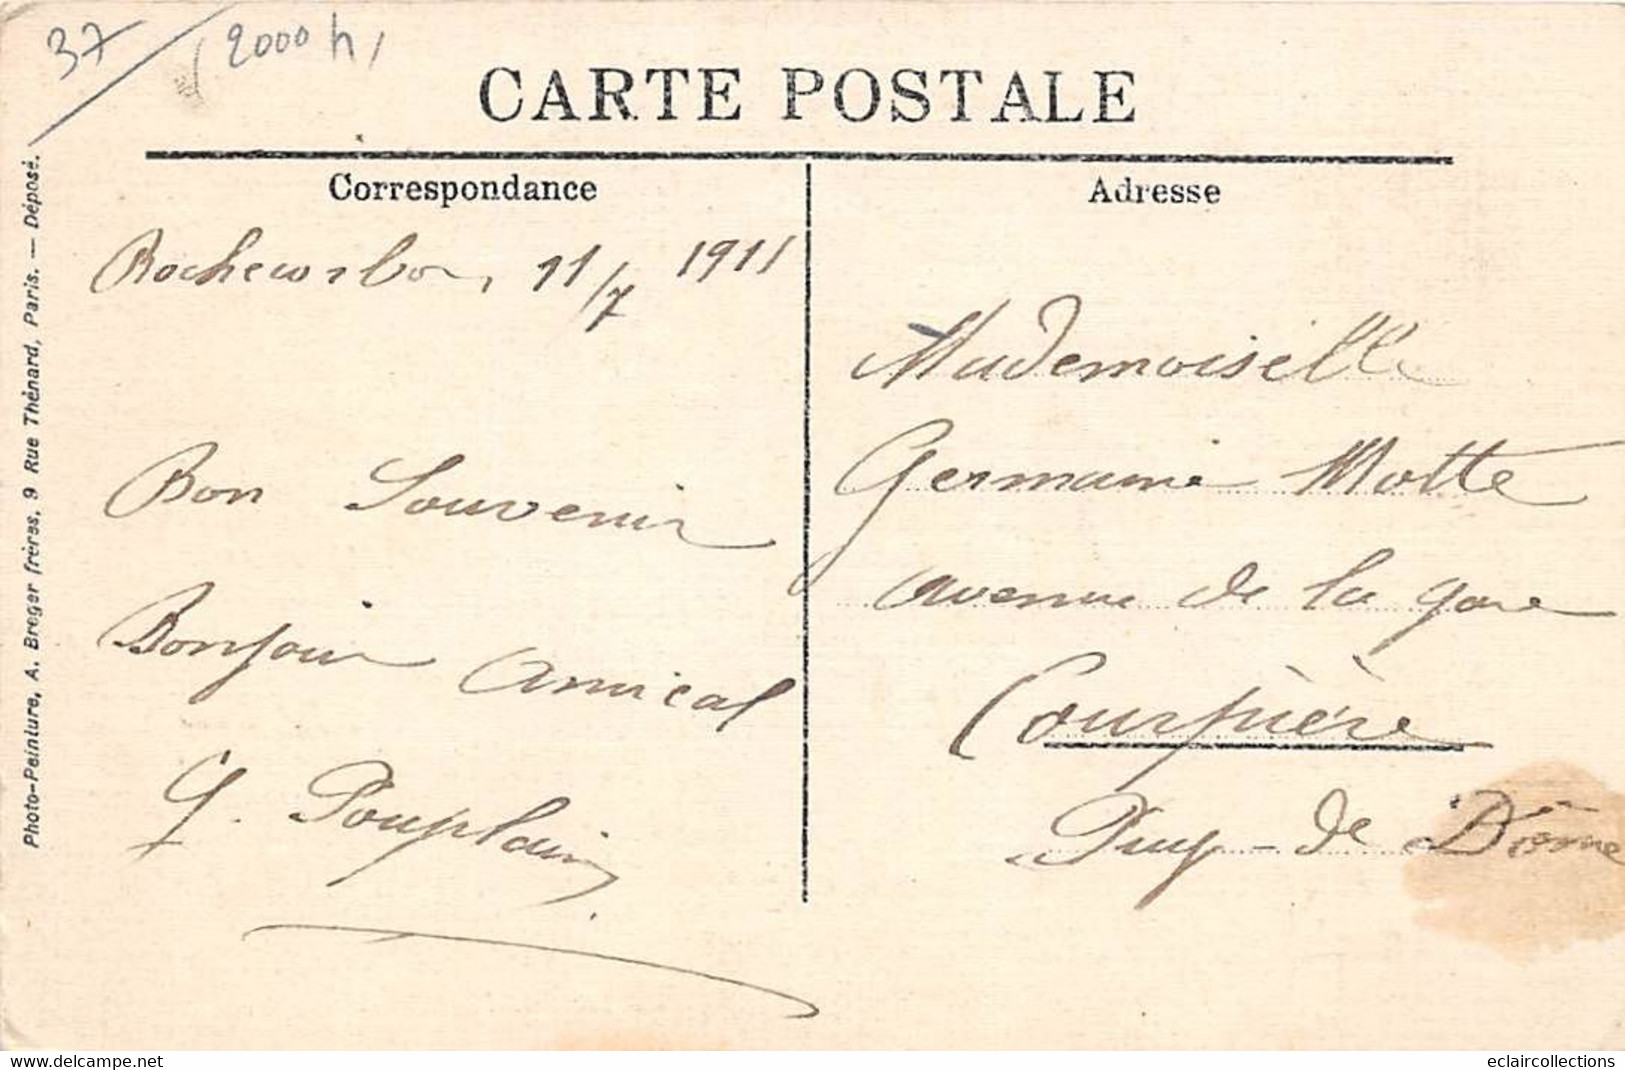 37
(2000 h)
CARTE POSTALE
Correspondance
Adresse
Photo-Peinture, A. Breger frères, 9 Rue Thénard, Paris. — Déposé.
Rochecorbon, 11/7 1911
Bon Souvenir
Bonjour Amical
G. Pouplain
Mademoiselle
Germaine Motte
avenue de la gare
Courpière
Puy-de Dôme
delcampe.net
eclaircollections